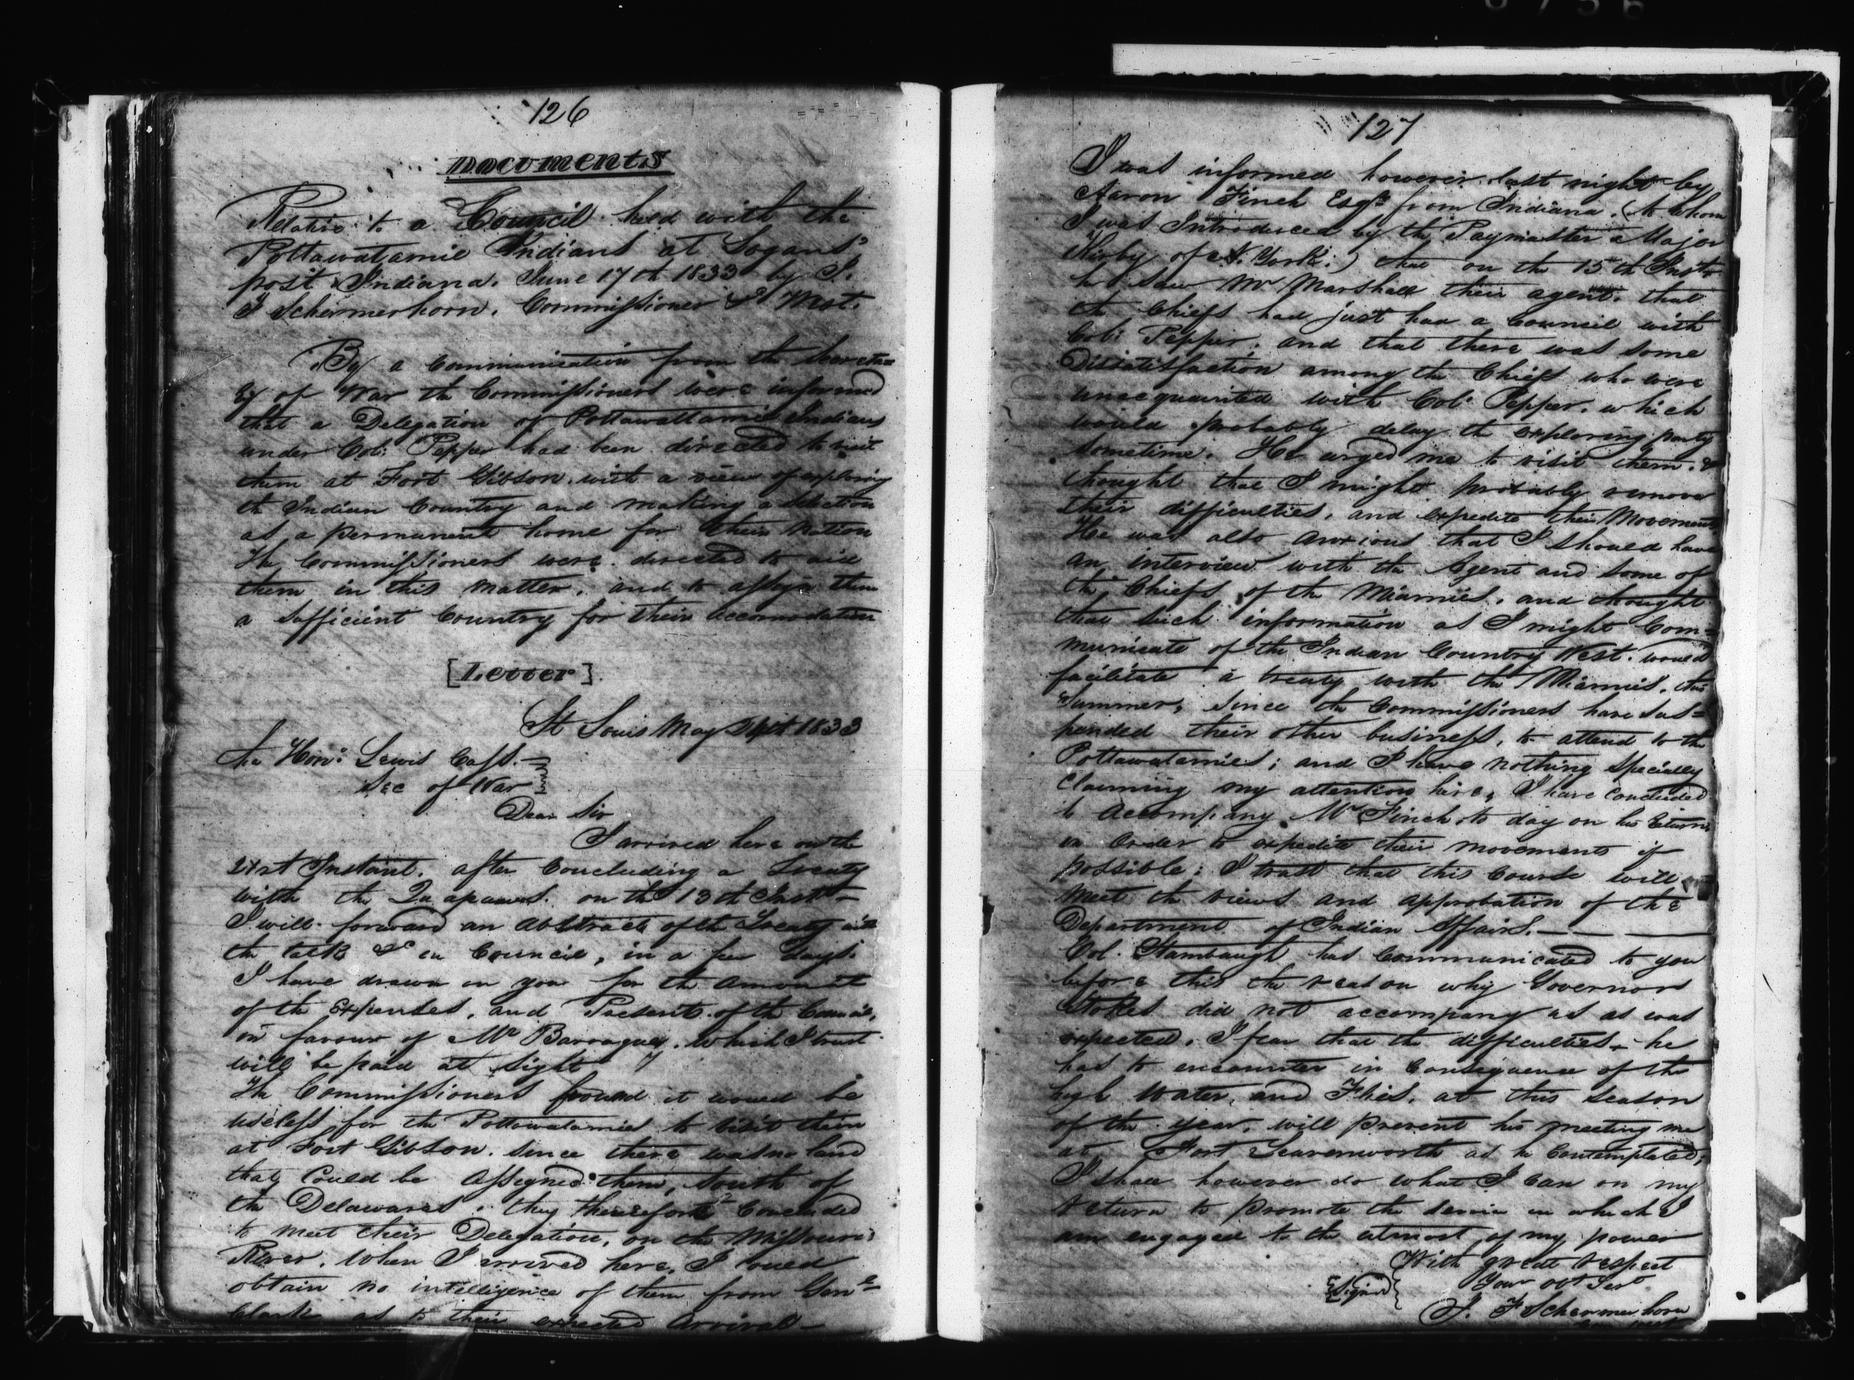 126
Documents
Relative to a Council held with the
Pottawatamie Indians at Logans'
post Indiana. June 17th 1833 by J.
F Schermerhorn. Commissioner &c West.
By a Communication from the Secreta-
ry of War the Commissioners were informed
that a Delegation of Pottawattamie Indians
under Col: Pepper had been directed to visit
them at Fort Gibson with a view of exploring
the Indian Country and making a selection
as a permanent home for their nation
The Commissioners were directed to aid
them in this matter, and to assign them
a sufficient Country for their accomodation
[Letter]
St Louis May 1833
The Hon: Lewis Cass.
Sec of War
Dear Sir
I arrived here on the
21st Instant. after Concluding a Treaty
with the Quapaws. on the 13th Inst—
I will forward an Abstract of the Treaty with
the talk &c in Council, in a few days.
I have drawn on you for the Amount
of the Expenses, and Presents of the Council,
in favour of Mr Barraquey. which I trust
will be paid at sight
The Commissioners found it would be
useless for the Pottowatamies to visit them
at Fort Gibson. since there was no land
that could be Assigned them, South of
the Delawares; they therefore Concluded
to meet their Delegation, on the Missouri
River. When I arrived here, I could
obtain no intelligence of them from Genl
Clark as to their expected Arrival—
127
I was informed however last night by
Aaron Finch Esqr from Indiana. (to whom
I was Introduced by the Paymaster Major
Kirby of N. York.) that on the 15th Inst
he saw Mr Marshall their agent. that
the Chiefs had just had a Council with
Col: Pepper, and that there was some
Dissatisfaction among the Chiefs who were
unacquainted with Col: Pepper. which
would probably delay the exploring party
sometime. He urged me to visit them. &
thought that I might probably remove
their difficulties, and expedite their Movements
He was also anxious that I should have
an interview with the Agent and some of
the Chiefs of the Miamies, and thought
that such information as I might Com-
municate of the Indian Country West. would
facilitate a treaty with the Miamies, this
Summer, Since the Commissioners have sus-
pended their other business, to attend to the
Pottawatamies; and I have nothing specially
Claiming my attention here, I have concluded
to Accompany Mr Finch to day on his return
in Order to expedite their movements if
possible: I trust that this Course will
meet the views and approbation of the
Department of Indian Affairs.———
Col. Stambaugh has Communicated to you
before this the reason why Governor
Stokes did not accompany us as was
expected, I fear that the difficulties he
has to encounter in Consequence of the
high Water and Flies, at this season
of the year, will prevent his meeting me
at Fort Leavenworth as he Contemplated,
I shall however do what I can on my
return to promote the service in which I
am engaged to the utmost of my power
With great respect
Your obt Sert
[Signed]
J. F Schermerhorn